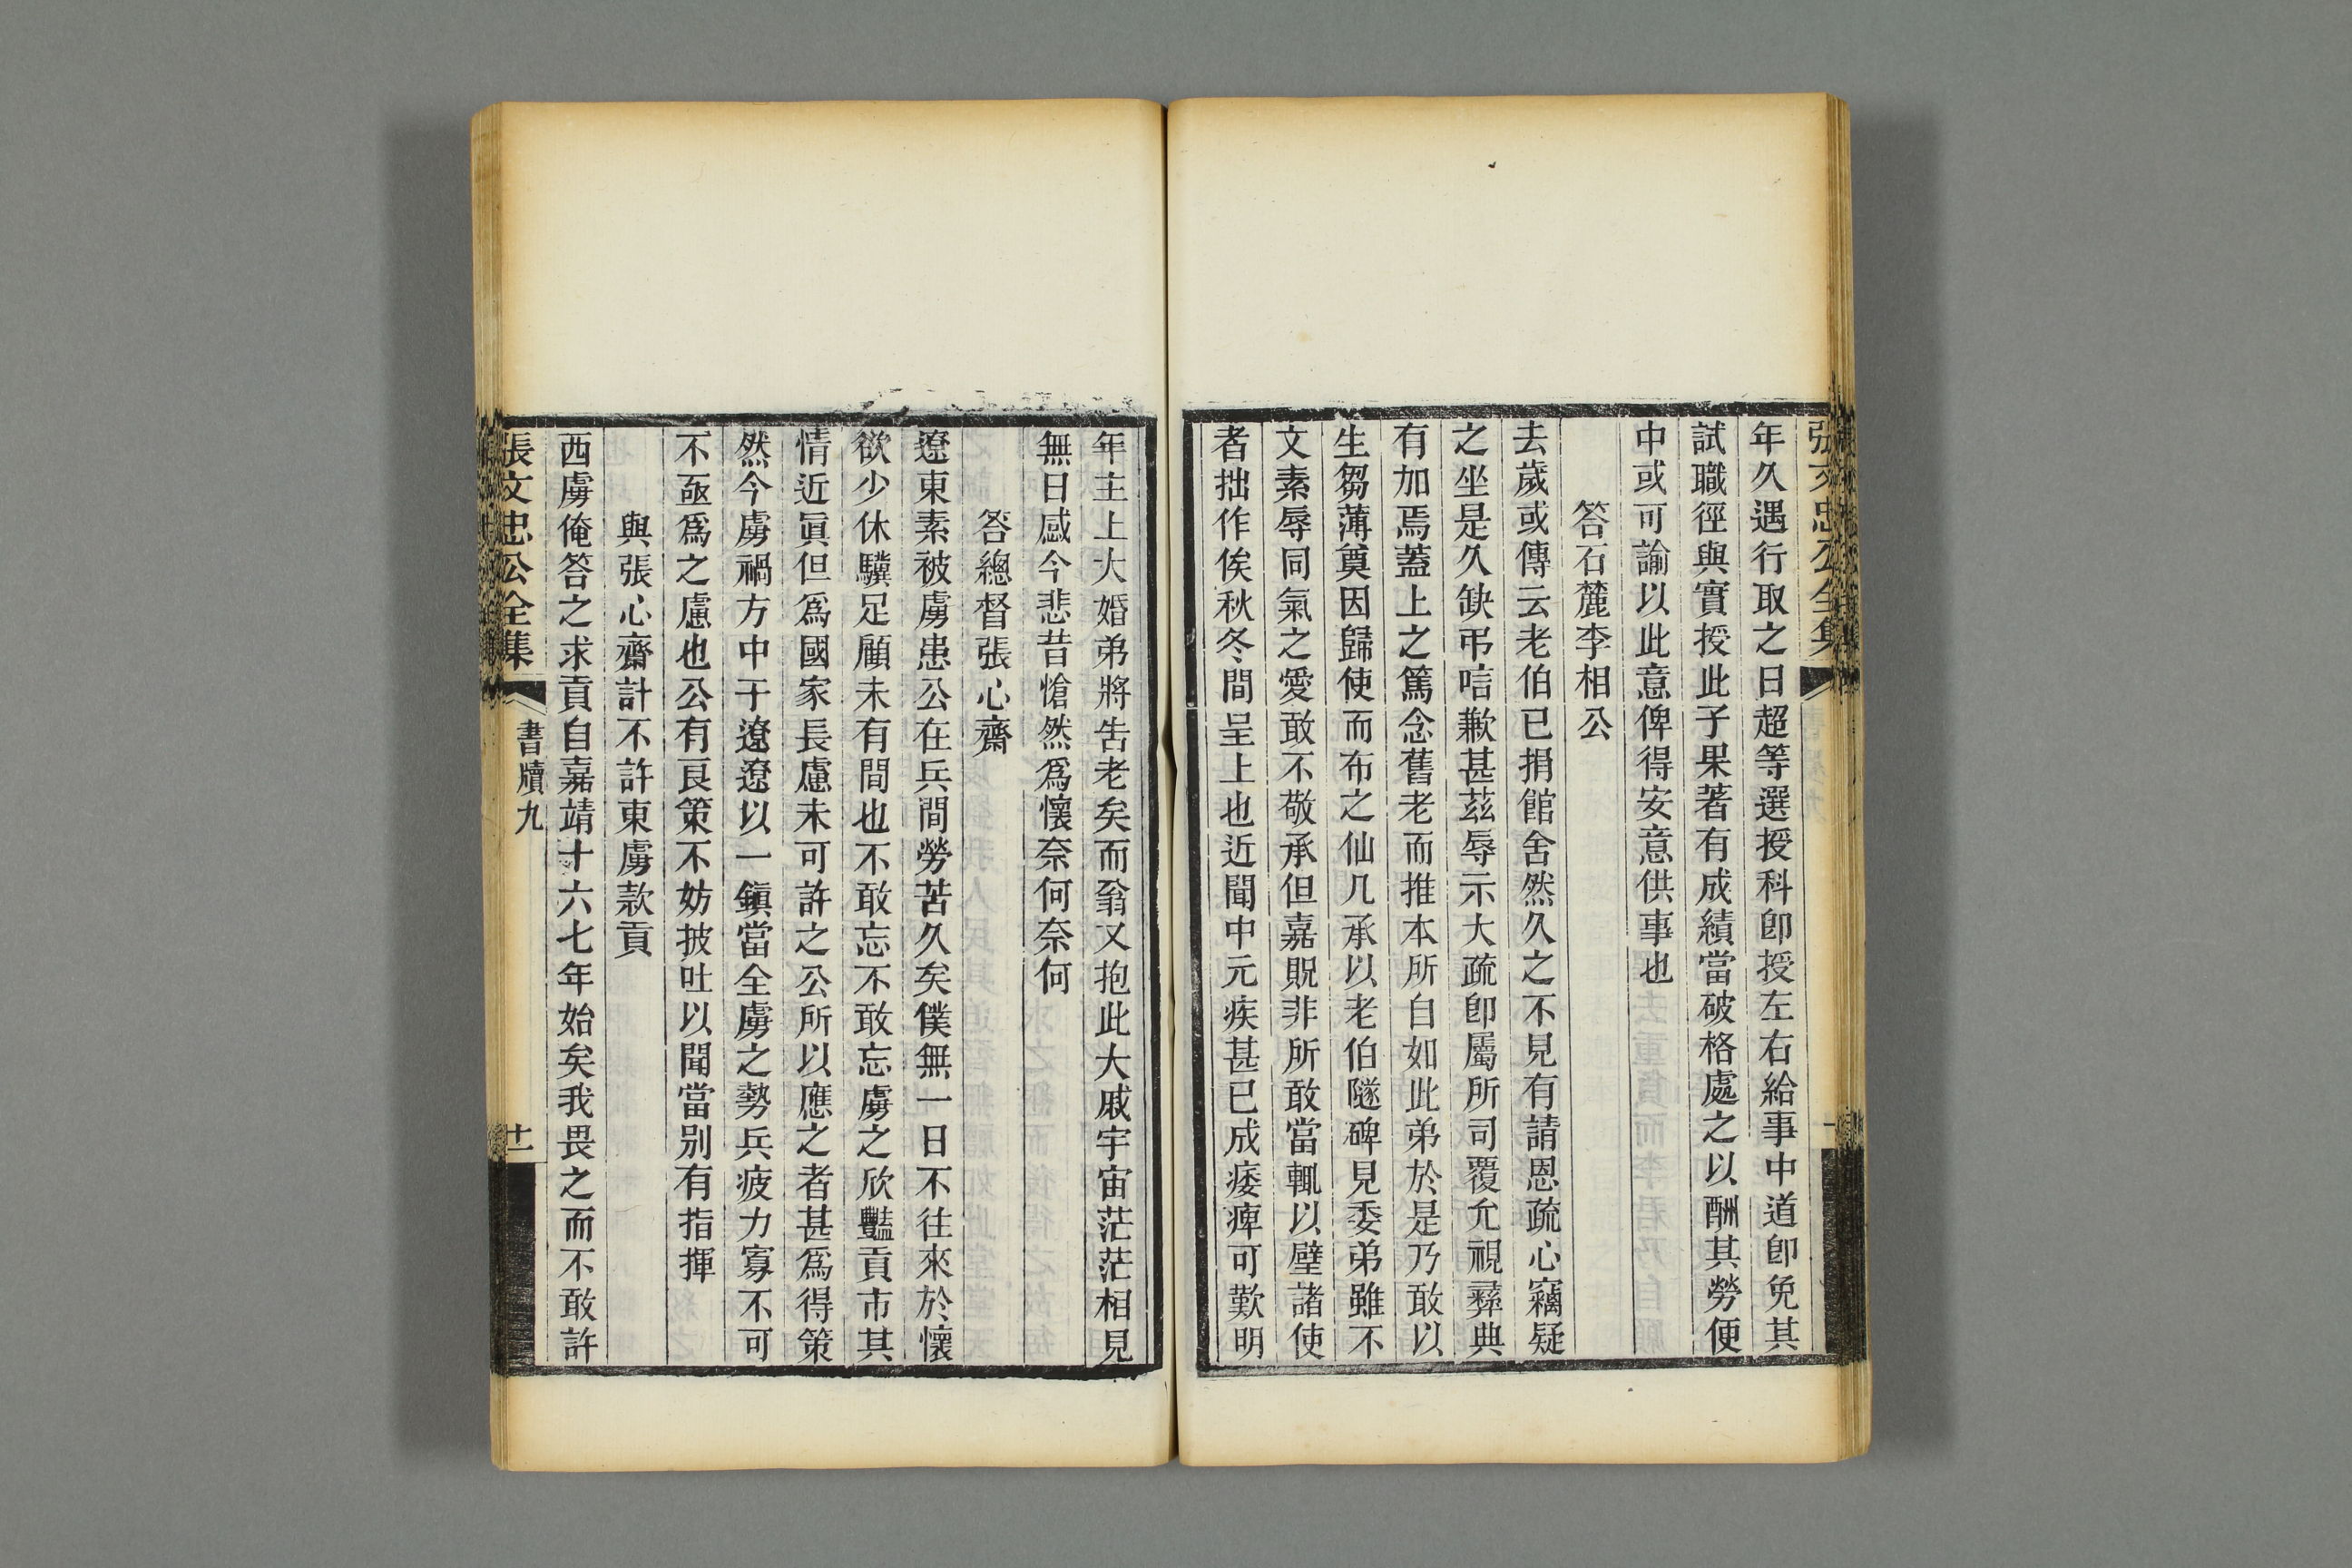 張文忠公全集
年久遇行取之日超等選授科卽授左右給事中道卽免其
試職徑與實授此子果著有成績當破格處之以酬其勞便
中或可諭以此意俾得安意供事也
答石麓李相公
去歲或傳云老伯已捐館舍然久之不見有請恩疏心竊疑
之坐是久缺弔唁歉甚茲辱示大疏卽屬所司覆允視彞典
有加焉蓋上之篤念舊老而推本所自如此弟於是乃敢以
生芻薄奠因歸使而布之仙几承以老伯隧碑見委弟雖不
文素辱同氣之愛敢不敬承但嘉貺非所敢當輒以璧諸使
者拙作俟秋冬間呈上也近聞中元疾甚已成痿痺可歎明
年主上大婚弟將告老矣而翁又抱此大戚宇宙茫茫相見
無日感今悲昔愴然爲懷奈何奈何
答總督張心齋
遼東素被虜患公在兵間勞苦久矣僕無一日不往來於懷
欲少休驥足顧未有間也不敢忘不敢忘虜之欣豔貢市其
情近眞但爲國家長慮未可許之公所以應之者甚爲得策
然今虜禍方中于遼遼以一鎭當全虜之勢兵疲力寡不可
不亟爲之慮也公有良策不妨披吐以聞當別有指揮
與張心齋計不許東虜款貢
西虜俺答之求貢自嘉靖十六七年始矣我畏之而不敢許
張文忠公全集
書牘九
十二